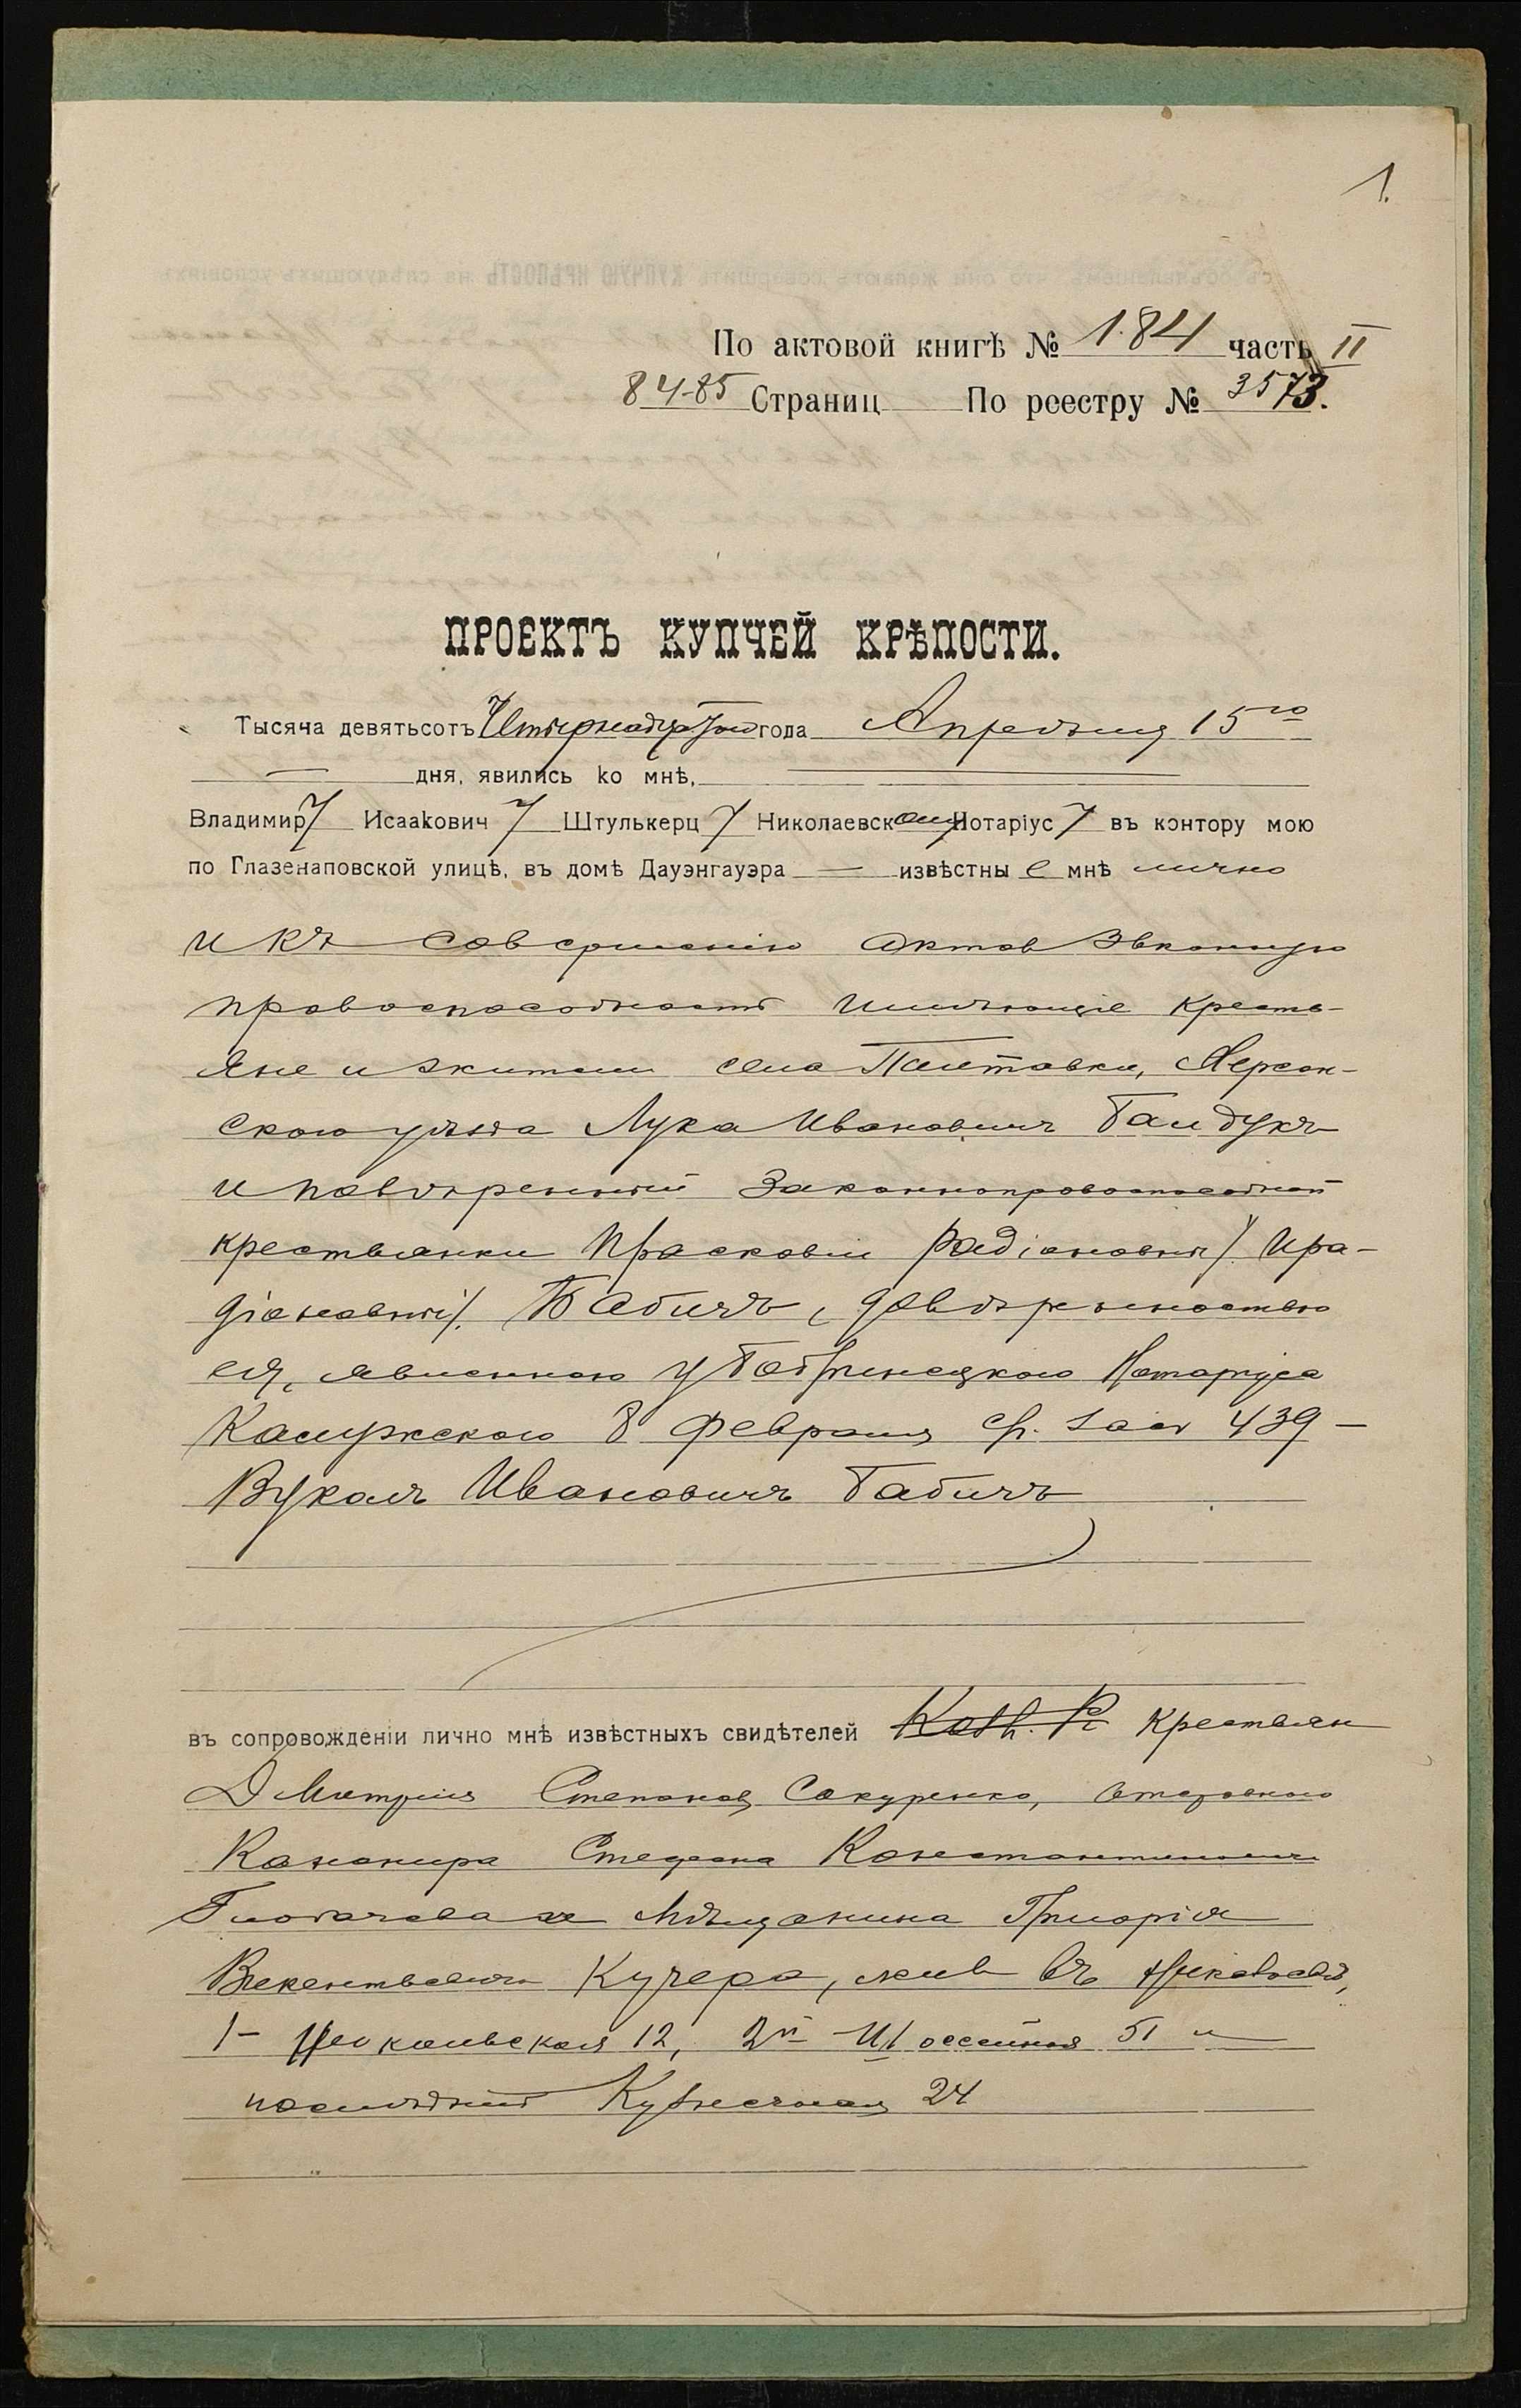 1.
По актовой книгѣ № 184 часть II
84-85 Страниц По реестру № 3573.
ПРОЕКТЪ КУПЧЕЙ КРѢПОСТИ.
Тысяча девятьсотъ Четырнадцатого года Апрѣля 15го
дня, явились ко мнѣ,
Владимиру Исааковичу Штулькерцу Николаевскому Нотаріусу въ контору мою
по Глазенаповской улицѣ, въ домѣ Дауэнгауэра извѣстные мнѣ лично
и къ совершенію актов законную
правоспособность имѣющіе кресть-
яне и жители села Полтавки, Херсон-
скаго уѣзда Лука Ивановичъ Гайдукъ
и повѣренный законноправоспособной
крестьянки Прасковіи Радіоновны/ Ира-
діоновны/. Бабичъ, довѣренностью
ея, явленною у Бобринецкаго Нотаріуса
8 февраля с/г. за № 439 —
Вукалъ Ивановичъ Бабичъ
въ сопровожденіи лично мнѣ извѣстныхъ свидѣтелей крестьян
Дмитрія Степанова Сокуренко, отставного
Канонира Стефана Константиновича
Мѣщанина Григорія
Викентьевича Кучера, жив въ Николаевѣ,
1- 12, 2й Шоссейная 51 и
послѣдній Кузнечная 24